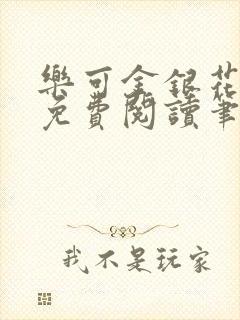 樂可金銀花
免費閱讀筆
我不是玩家